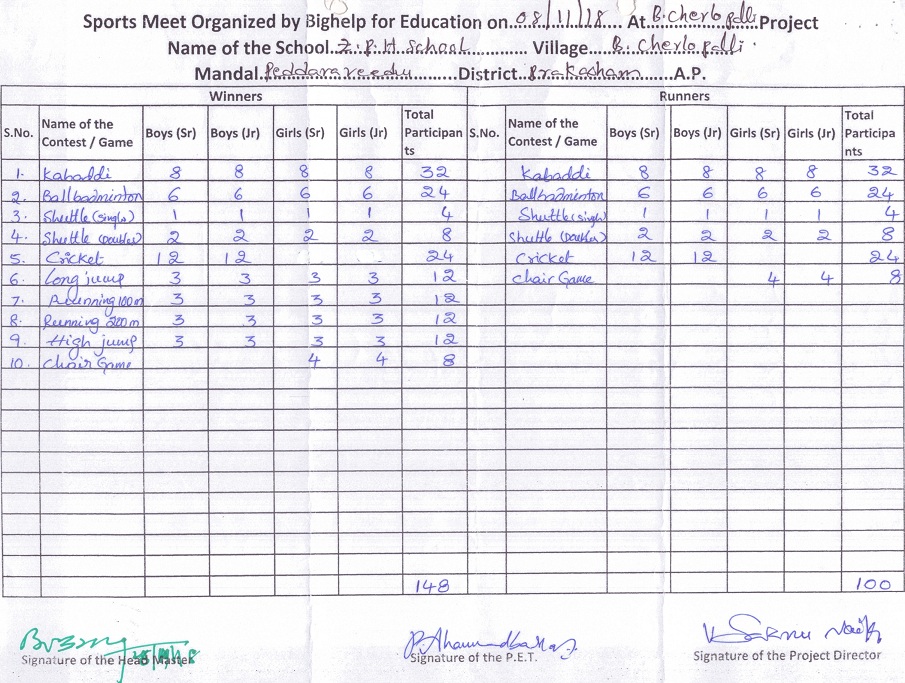 Sports Meet Organized by Bighelp for Education on 08/11/18 At B.cherlopalli Project
Name of the School Z.P.H. School Village B. Cherlopalli.
Mandal Peddaraveedu District Prakasham A.P.
Winners Runners
S.No. Name of the Contest / Game Boys (Sr) Boys (Jr) Girls (Sr) Girls (Jr) Total Participants S.No. Name of the Contest / Game Boys (Sr) Boys (Jr) Girls (Sr) Girls (Jr) Total Participants
1. Kabaddi 8 8 8 8 32 Kabaddi 8 8 8 8 32
2. Ballbadminton 6 6 6 6 24 Ballbadminton 6 6 6 6 24
3. Shuttle (single) 1 1 1 1 4 Shuttle (single) 1 1 1 1 4
4. Shuttle (Doubles) 2 2 2 2 8 Shuttle (Doubles) 2 2 2 2 8
5. Cricket 12 12 24 Cricket 12 12 24
6. Long jump 3 3 3 3 12 Chair Game 4 4 8
7. Running 100 m 3 3 3 3 12
8. Running 200 m 3 3 3 3 12
9. High jump 3 3 3 3 12
10. Chair Game 4 4 8
148 100
Signature of the Head Master Signature of the P.E.T. Signature of the Project Director